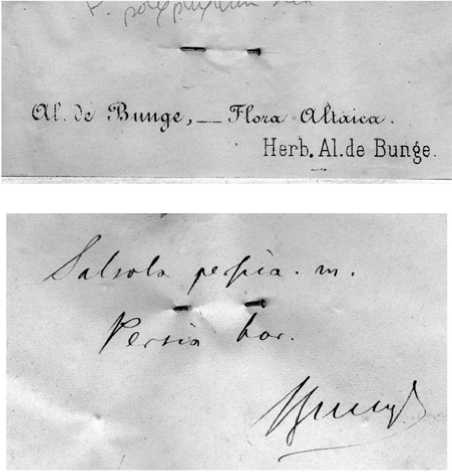 P.
Al. de Bunge, — Flora Altaica.
Herb. Al. de Bunge.
Salsola persica. m.
Persia bor.
Bunge